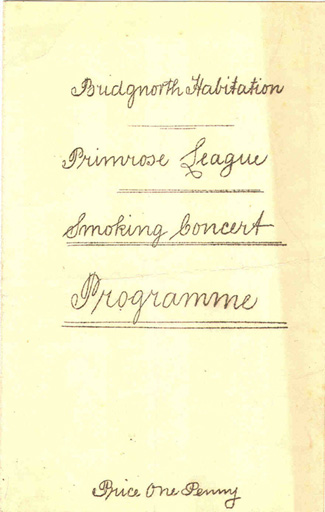 Bridgnorth Habitation
Primrose League
Smoking Concert
Programme
Price One Penny